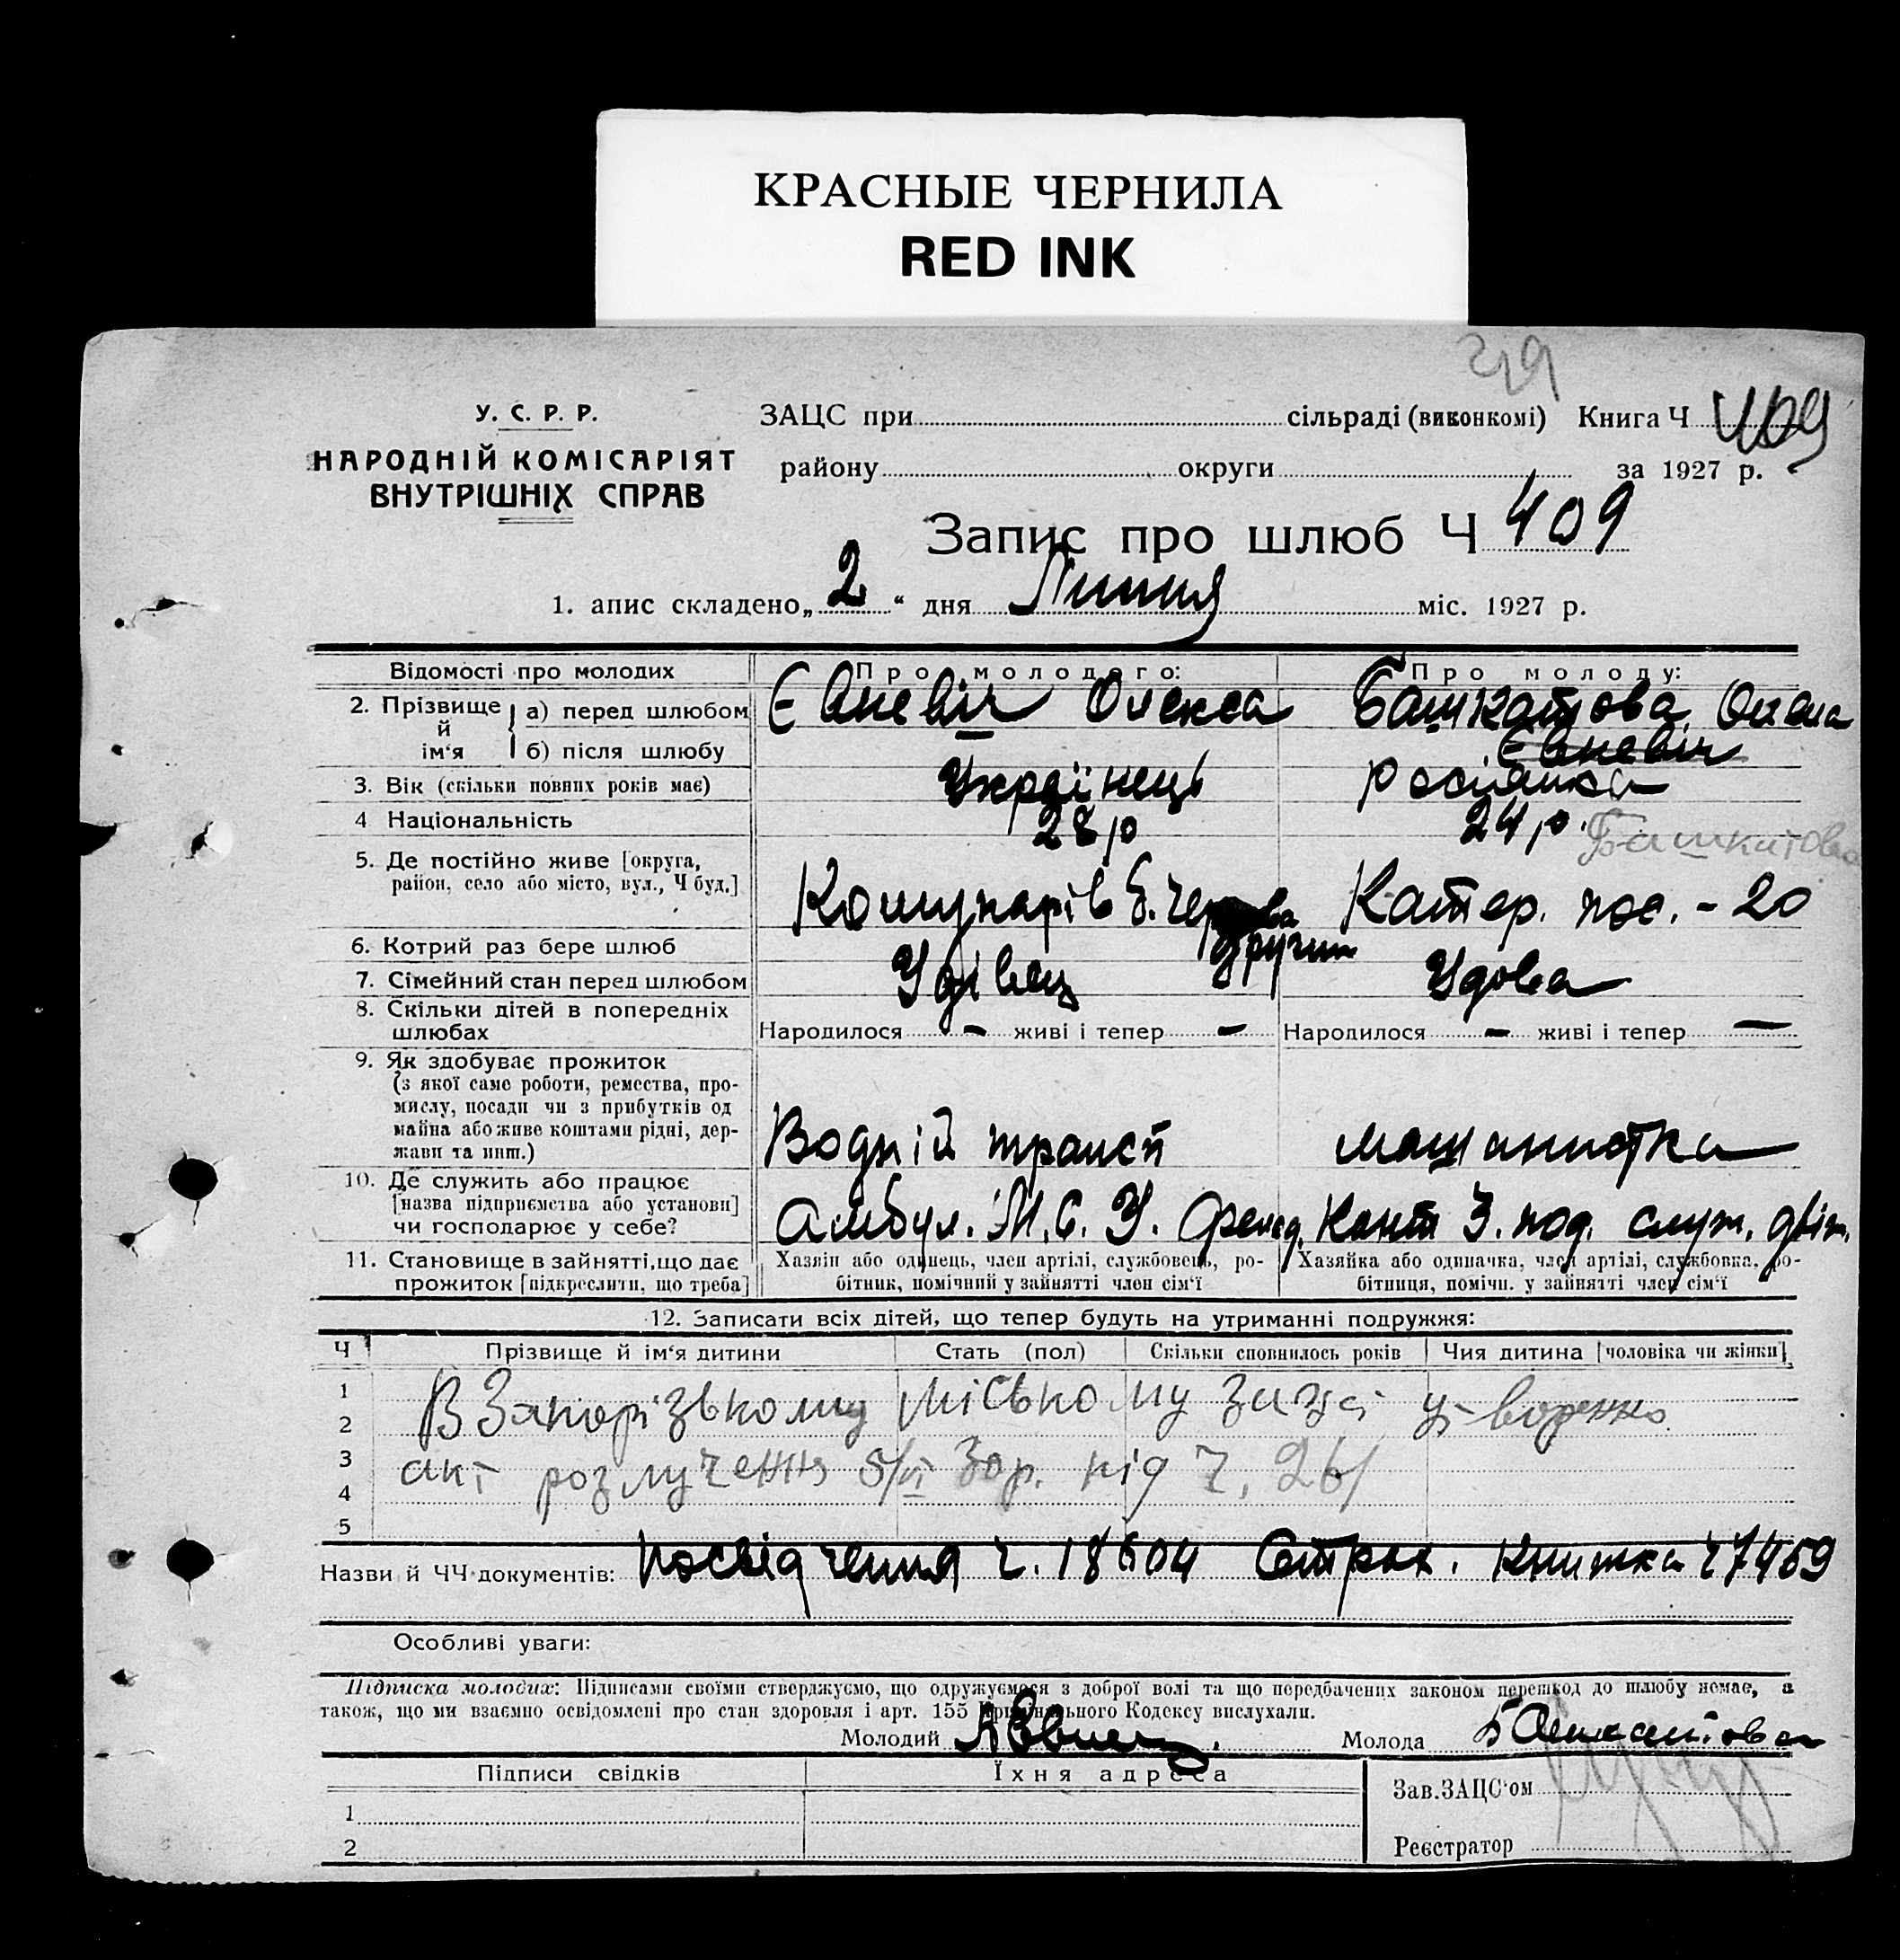 КРАСНЫЕ ЧЕРНИЛА
RED INK
У. С. Р. Р.
НАРОДНІЙ КОМІСАРІЯТ
ВНУТРІШНІХ СПРАВ
ЗАЦС при сільраді (виконкомі) Книга Ч 409
району округи за 1927 р.
Запис про шлюб Ч 409
1. апис складено „ 2 “ дня Липня міс. 1927 р.
Відомості про молодих Про молодого: Про молоду:
2. Прізвище й ім‘я а) перед шлюбом Євневіч Олекса Башкатова Олена
б) після шлюбу Євневіч
3. Вік (скільки повних років має) Українець росіянка
4 Національність 28 р 24 р. Башкатова
5. Де постійно живе [округа,
район, село або місто, вул., Ч буд.] Комунарів Катер. пос. - 20
6. Котрий раз бере шлюб Другий
7. Сімейний стан перед шлюбом Удівец Удова
8. Скільки дітей в попередніх
шлюбах Народилося - живі і тепер - Народилося - живі і тепер -
9. Як здобуває прожиток
(з якої саме роботи, ремества, про-
мислу, посади чи з прибутків од
майна або живе коштами рідні, дер-
жави та инш.) Водній трансп машинистка
10. Де служить або працює
[назва підприємства або установи]
чи господарює у себе? Амбул. М. С. У. Конт З. под. служ. двіж.
11. Становище в зайнятті, що дає
прожиток [підкреслити, що треба]
Хазяїн або одинець, член артілі, службовець, ро-
бітник, помічний у зайнятті член сім‘ї
Хазяйка або одиначка, член артілі, службовка, ро-
бітниця, помічн. у зайнятті член сім‘ї
12. Записати всіх дітей, що тепер будуть на утриманні подружжя:
Ч Прізвище й ім‘я дитини Стать (пол) Скільки сповнилось років Чия дитина [чоловіка чи жінки]
1
В Запорізькому міському Загсі утворенно
2
3
акт розлучення 5/VI під Ч. 261
4
5
Назви й ЧЧ документів: Посвідчення ч. 18604 Страх. Книжка ч 7459
Особливі уваги:
Підписка молодих: Підписами своїми стверджуємо, що одружуємося з доброї волі та що передбачених законом перешкод до шлюбу немає, а
також, що ми взаємно освідомлені про стан здоровля і арт. 155 Кримінального Кодексу вислухали.
Молодий Молода Башкатова
Підписи свідків Їхня адреса
Зав. ЗАЦС‘ом
1
Реєстратор
2